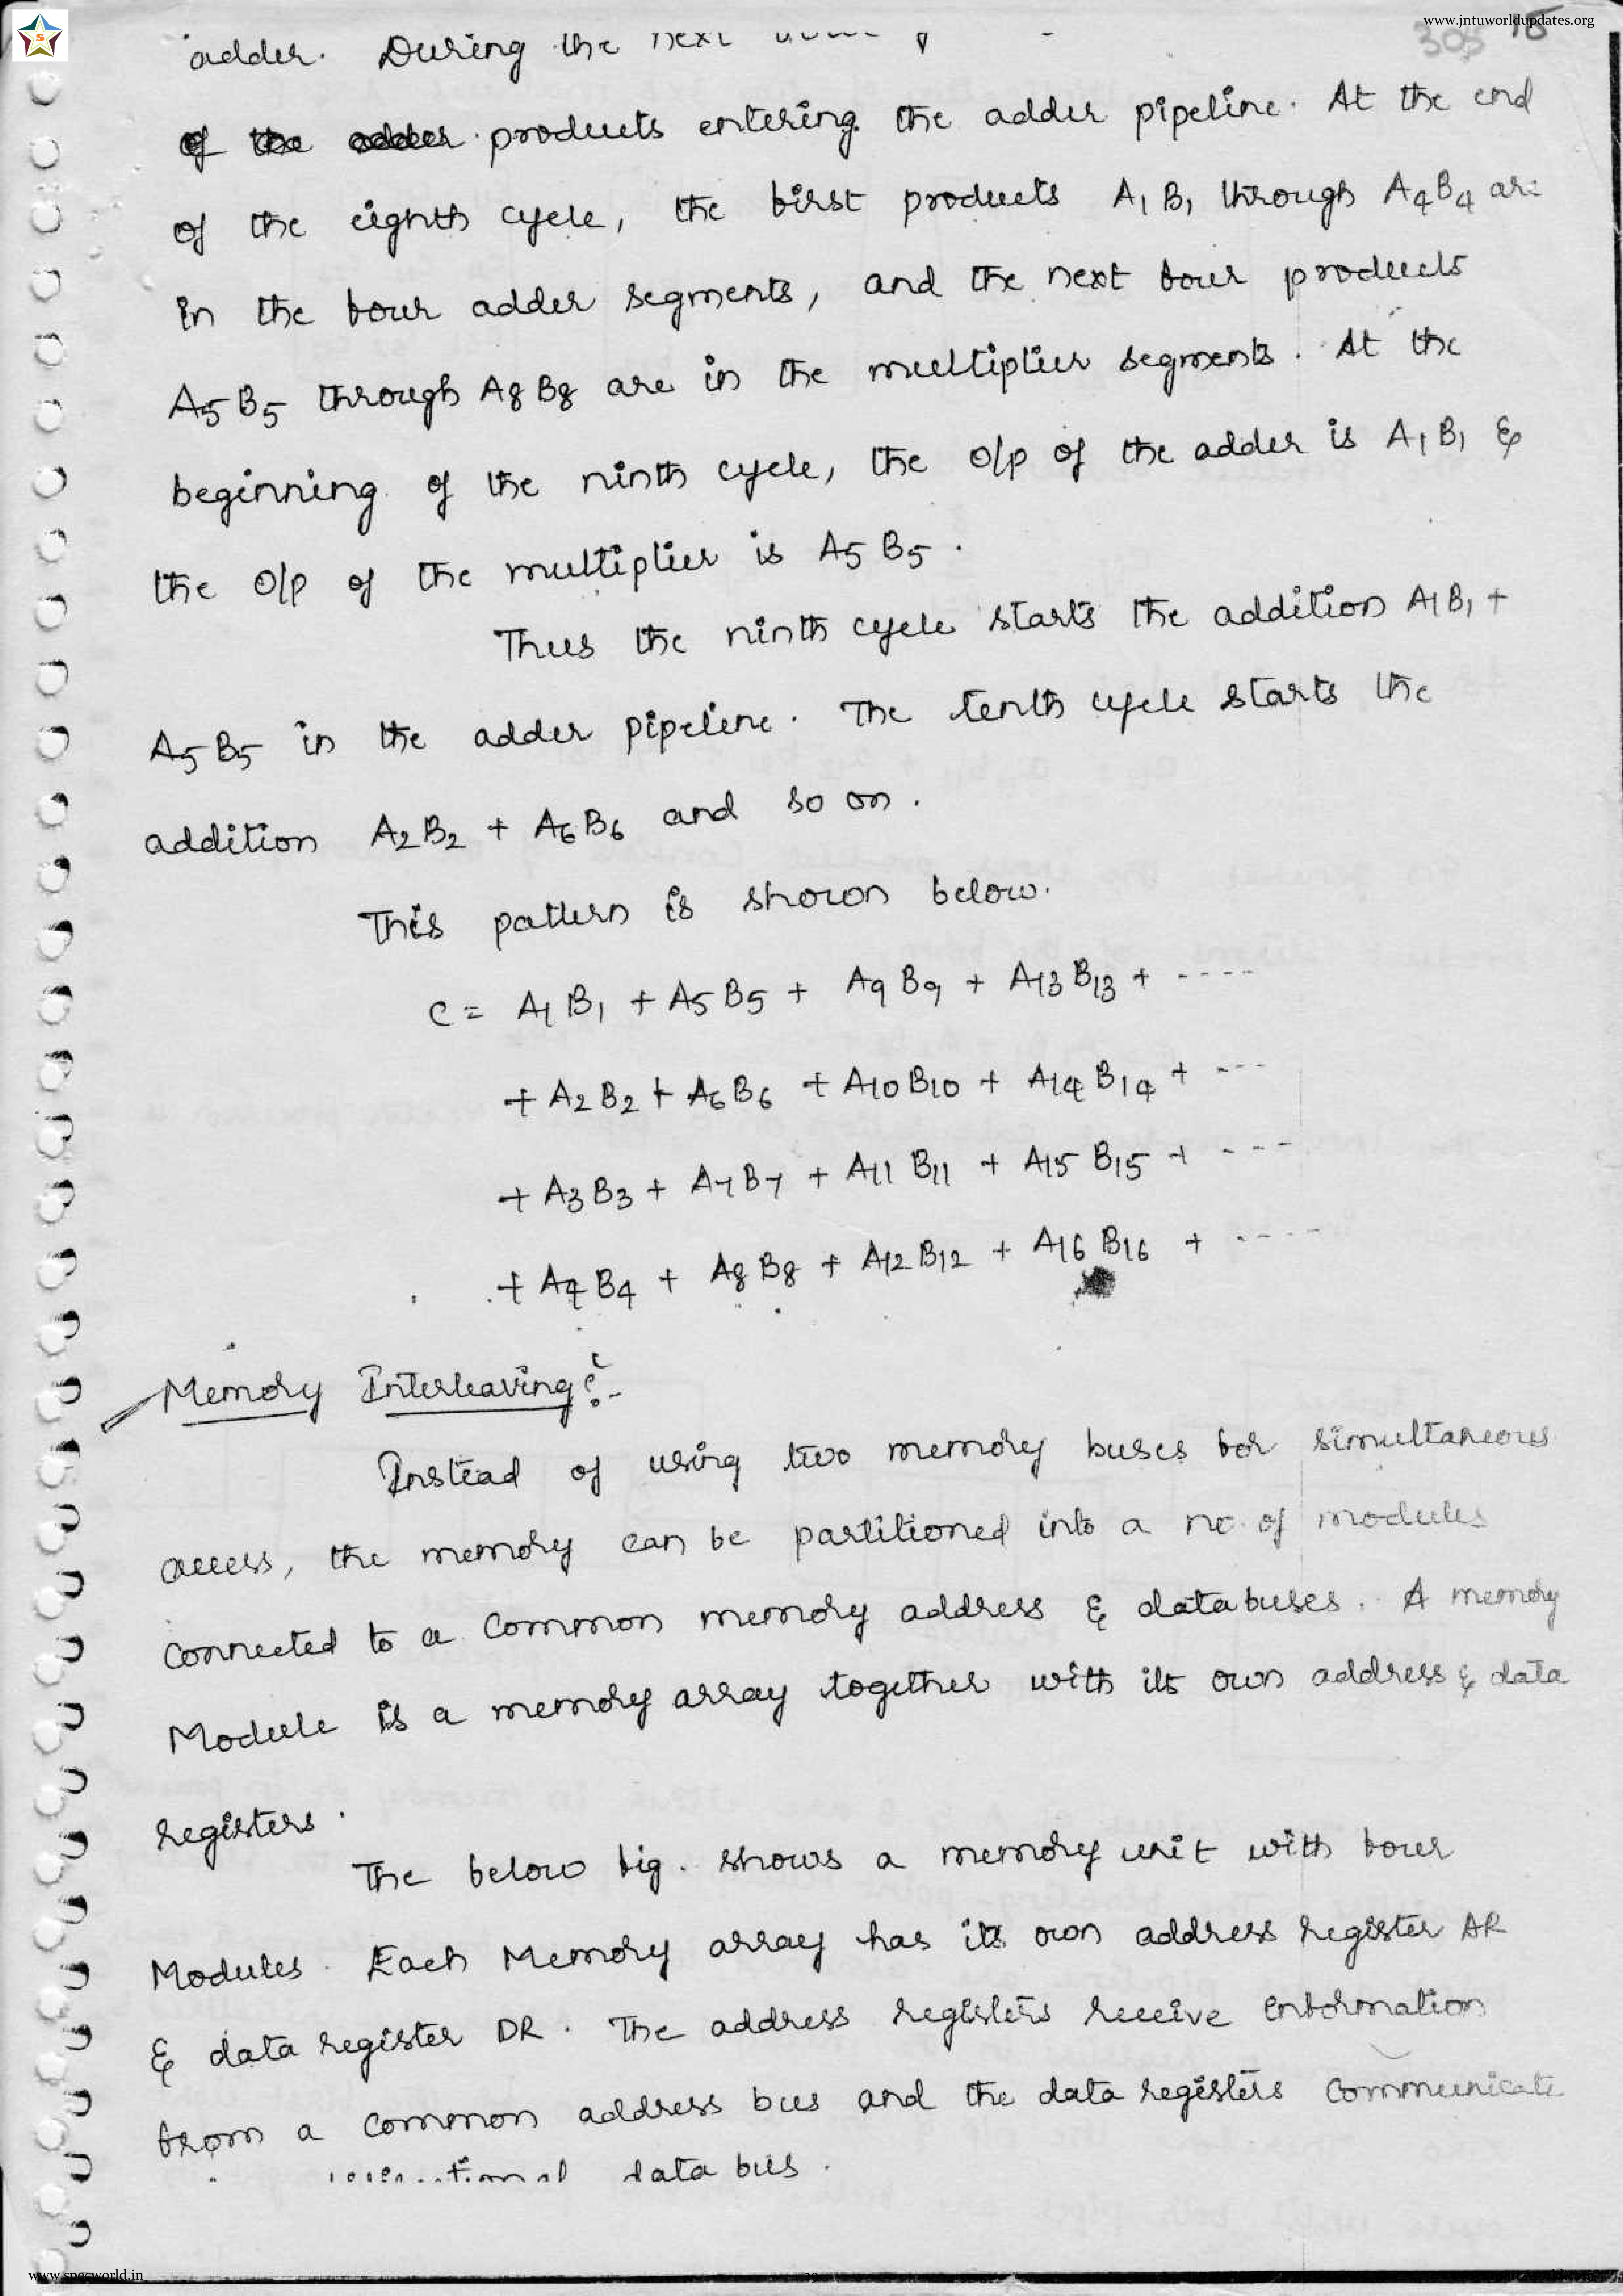 www.jntuworldupdates.org
S
305 15
adder. During the next
products entering the adder pipeline. At the end
of the eighth cycle, the first products A1 B1 through A4 B4 are
in the four adder segments, and the next four products
A5 B5 through A8 B8 are in the multiplier segments. At the
beginning of the ninth cycle, the o/p of the adder is A1 B1 &
the o/p of the multiplier is A5 B5.
Thus the ninth cycle starts the addition A1 B1 +
A5 B5 in the adder pipeline. The tenth cycle starts the
addition A2 B2 + A6 B6 and so on.
This pattern is shown below.
C = A1 B1 + A5 B5 + A9 B9 + A13 B13 + ----
+ A2 B2 + A6 B6 + A10 B10 + A14 B14 + ---
+ A3 B3 + A7 B7 + A11 B11 + A15 B15 + ---
+ A4 B4 + A8 B8 + A12 B12 + A16 B16 + ----
Memory Interleaving :-
Instead of using two memory buses for simultaneous
access, the memory can be partitioned into a no. of modules
connected to a common memory address & databuses. A memory
Module is a memory array together with its own address & data
registers.
The below fig. shows a memory unit with four
Modules. Each Memory array has its own address register AR
& data register DR. The address registers receive information
from a common address bus and the data registers communicate
data bus.
www.specworld.in